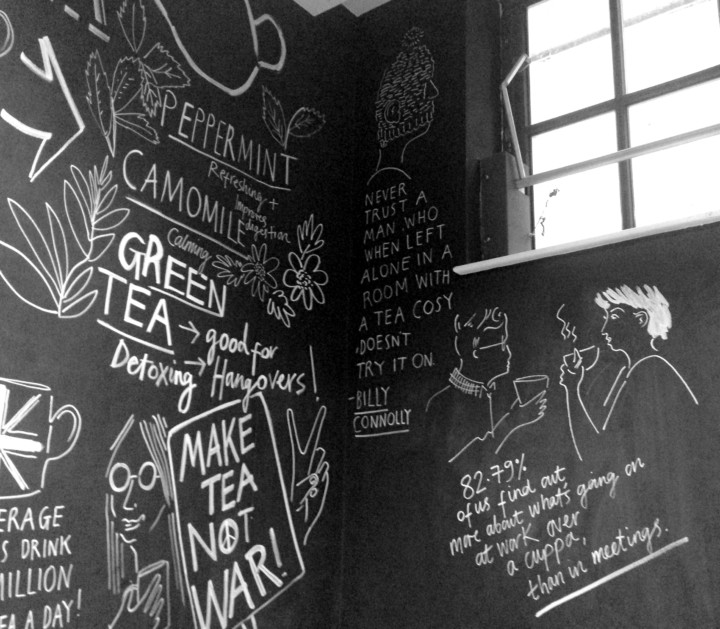 PEPPERMINT
Refreshing +
Improves
digestion
CAMOMILE
Calming
GREEN
TEA → good for
Detoxing → Hangovers!
MAKE
TEA
NOT
WAR!
ERAGE
S DRINK
MILLION
EA A DAY!
NEVER
TRUST A
MAN WHO
WHEN LEFT
ALONE IN A
ROOM WITH
A TEA COSY
DOESN'T
TRY IT ON.
-BILLY
CONNOLLY
82.79%
of us find out
more about what's going on
at work over
a cuppa,
than in meetings.